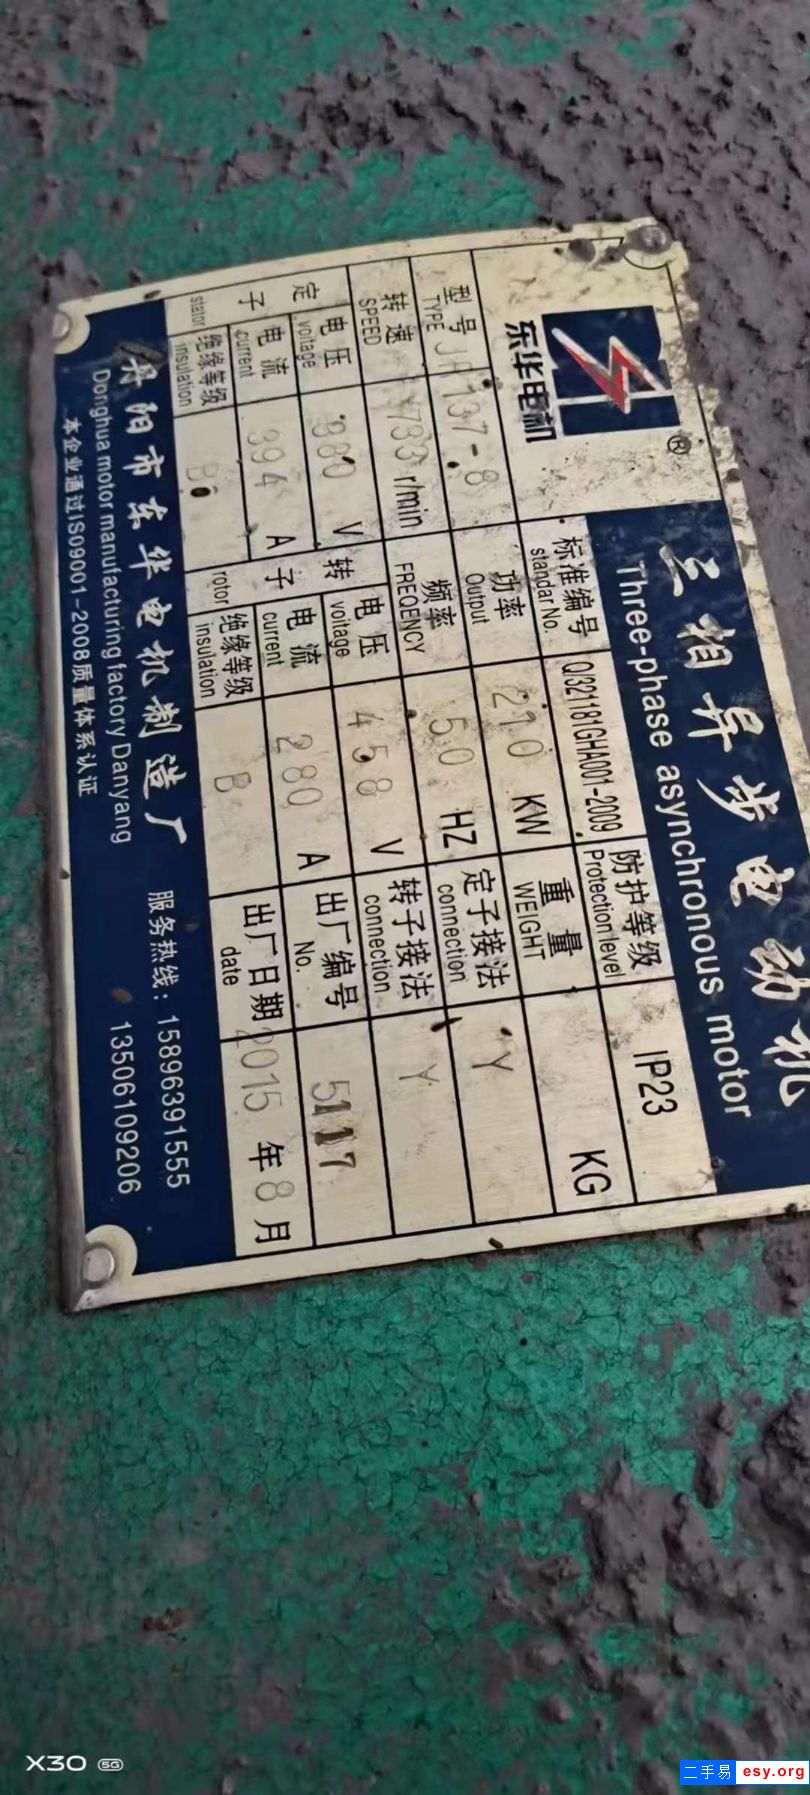 东华电机
®
三相异步电动机
Three-phase asynchronous motor
标准编号 standar No. Q/321181GHA001-2009 防护等级 Protection level IP23
型号 TYPE JR137-8 功率 Output 210 KW 重量 WEIGHT KG
转速 SPEED 733 r/min 频率 FREQENCY 50 HZ 定子接法 connection Y
定子 stator 电压 voltage 380 V 转子 rotor 电压 voitage 458 V 转子接法 connection Y
电流 current 394 A 电流 current 280 A 出厂编号 No. 5117
绝缘等级 insulation B 绝缘等级 insulation B 出厂日期 date 2015 年 8 月
丹阳市东华电机制造厂 服务热线: 15896391555
Donghua motor manufacturing factory Danyang 13506109206
本企业通过ISO9001-2008质量体系认证
X30 5G
二手易 esy.org